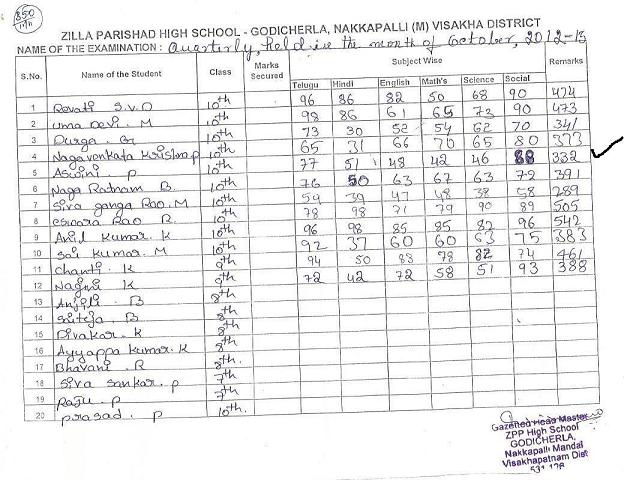 850
ZILLA PARISHAD HIGH SCHOOL - GODICHERLA, NAKKAPALLI (M) VISAKHA DISTRICT
NAME OF THE EXAMINATION : Quarterly, held in the month of October, 2012-13
S.No. Name of the Student Class Marks Secured Subject Wise Remarks
Telugu Hindi English Math's Science Social
1 Revati S.V.D 10th 96 86 82 50 68 90 474
2 Uma Devi. M 10th 98 86 61 65 73 90 473
3 Durga. Gr 10th 73 30 52 54 62 70 341
4 Nagavenkata Krishna P 10th 65 31 66 70 65 80 373
5 Aswini P 10th 77 51 48 42 46 68 332
6 Naga Ratnam B. 10th 76 50 63 67 63 72 391
7 Siva ganga Rao. M 10th 59 39 47 48 38 58 289
8 eswara Rao R. 10th 78 98 71 79 90 89 505
9 Anil Kumar. K 10th 96 98 85 85 82 96 542
10 Sai Kumar. M 10th 92 37 60 60 63 75 383
11 Chanti. K 9th 94 50 83 78 82 74 461
12 Nagini K 9th 72 42 72 58 51 93 388
13 Anjili. B 8th
14 Sriteja. B 8th
15 Divakar. K 8th
16 Ayyappa Kumar. K 8th
17 Bhavani. R 8th.
18 Siva Sankar. P 7th
19 Raju. P 7th
20 Prasad. P 10th.
Gazetted Head Master
ZPP High School
GODICHERLA,
Nakkapalli Mandal
Visakhapatnam Dist
531 126